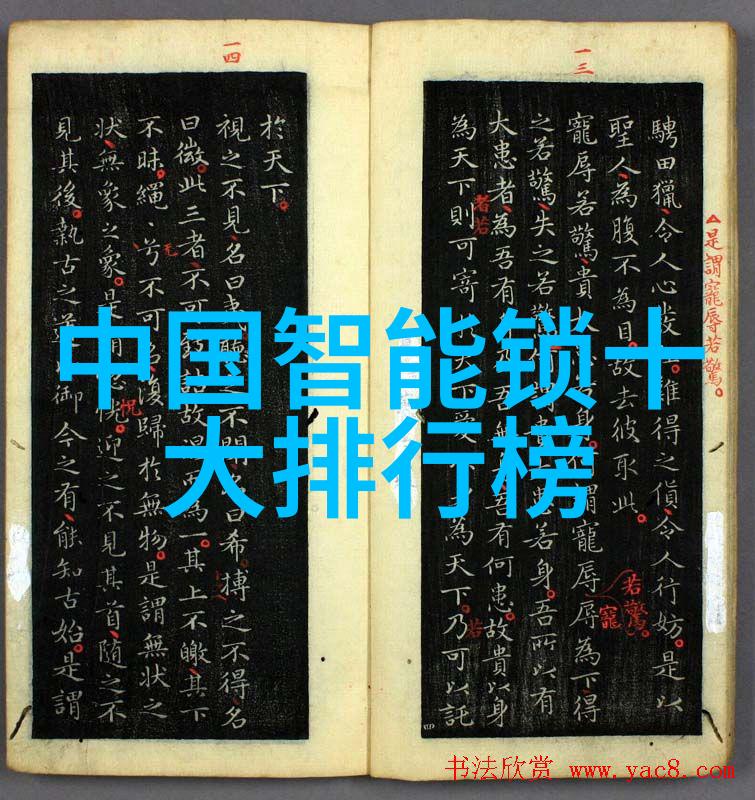 一四
一三
中国智能锁十
大排行榜
騁田獵令人心發難得之貨令人行妨。是以
聖人為腹不為目。故去彼取此。
寵辱若驚貴身。謂寵辱辱為下得
之若驚失之若驚謂貴患若身。吾所以有
大患者為吾有吾吾有何患。故貴以身
為天下則可寄天下愛為天下。乃可以託
△是謂寵辱若驚。
者若
若驚。
寵
若
於天下。
視之不見名曰夷聽之不聞名曰希搏之不得名
曰微。此三者不可致詰故混而為一。其上不皦其下
不昧。繩〻兮不可名復歸於無物。是謂無狀之
狀無象之象。是謂忽迎之不見其首隨之不
見其後。執古之道以御今之有能知古始。是謂
无
恍
书法欣赏 www.yac8.com